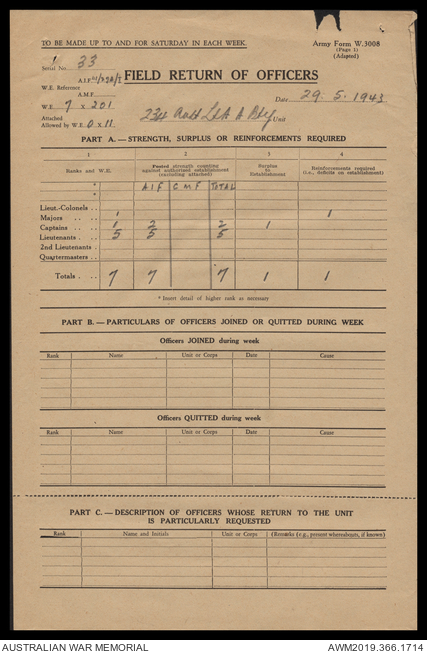 TO BE MADE UP TO AND FOR SATURDAY IN EACH WEEK.
Army Form W.3008
(Page 1)
(Adapted)
Serial No. 33
W.E. Reference A.I.F.
A.M.F.
FIELD RETURN OF OFFICERS
W.E. 7 x 201
Date 29. 5. 1943
Attached
Allowed by W.E. 0 x 11
234 Aust Lt A A Bty Unit
PART A.—STRENGTH, SURPLUS OR REINFORCEMENTS REQUIRED
1 2 3 4
Ranks and W.E. Posted strength counting against authorised establishment (excluding attached) Surplus to Establishment Reinforcements required (i.e., deficits on establishment)
* AIF CMF TOTAL
*
Lieut.-Colonels . .
Majors . . . . 1 1
Captains . . . . 1 2 2 1
Lieutenants . . . 5 5 5
2nd Lieutenants .
Quartermasters . .
Totals . . . 7 7 7 1 1
* Insert detail of higher rank as necessary
PART B.—PARTICULARS OF OFFICERS JOINED OR QUITTED DURING WEEK
Officers JOINED during week
Rank Name Unit or Corps Date Cause
Officers QUITTED during week
1 2 3 4 5
Rank Name Unit or Corps Date Cause
PART C.—DESCRIPTION OF OFFICERS WHOSE RETURN TO THE UNIT
IS PARTICULARLY REQUESTED
Rank Name and Initials Unit or Corps (Remarks (e.g., present whereabouts, if known)
AUSTRALIAN WAR MEMORIAL
AWM2019.366.1714